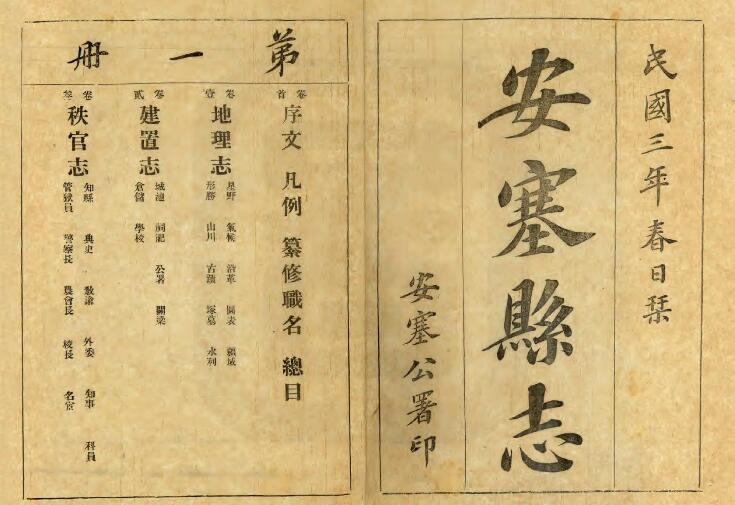 民國三年春日栞
安塞縣志
安塞公署印
第一册
卷首
序文 凡例 纂修職名 總目
卷壹
地理志
星野 氣候 沿革 圖表 疆域
形勝 山川 古蹟 塚墓 水利
卷貳
建置志
城池 祠祀 公署 關梁
倉儲 學校
卷叁
秩官志
知縣 典史 敎諭 外委 知事 科員
管獄員 警察長 農會長 校長 名宦